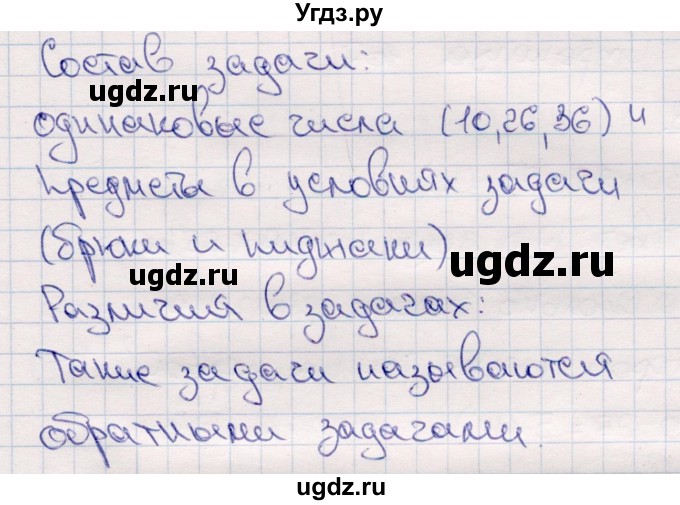 Угдз.ру
Состав задачи:
ugdz.ru
одинаковые числа (10,26,36) и
предметы в условиях задачи
(брюки и пиджаки)
ugdz.ru
ugdz.ru
Различия в задачах:
Такие задачи называются
обратными задачами.
ugdz.ru